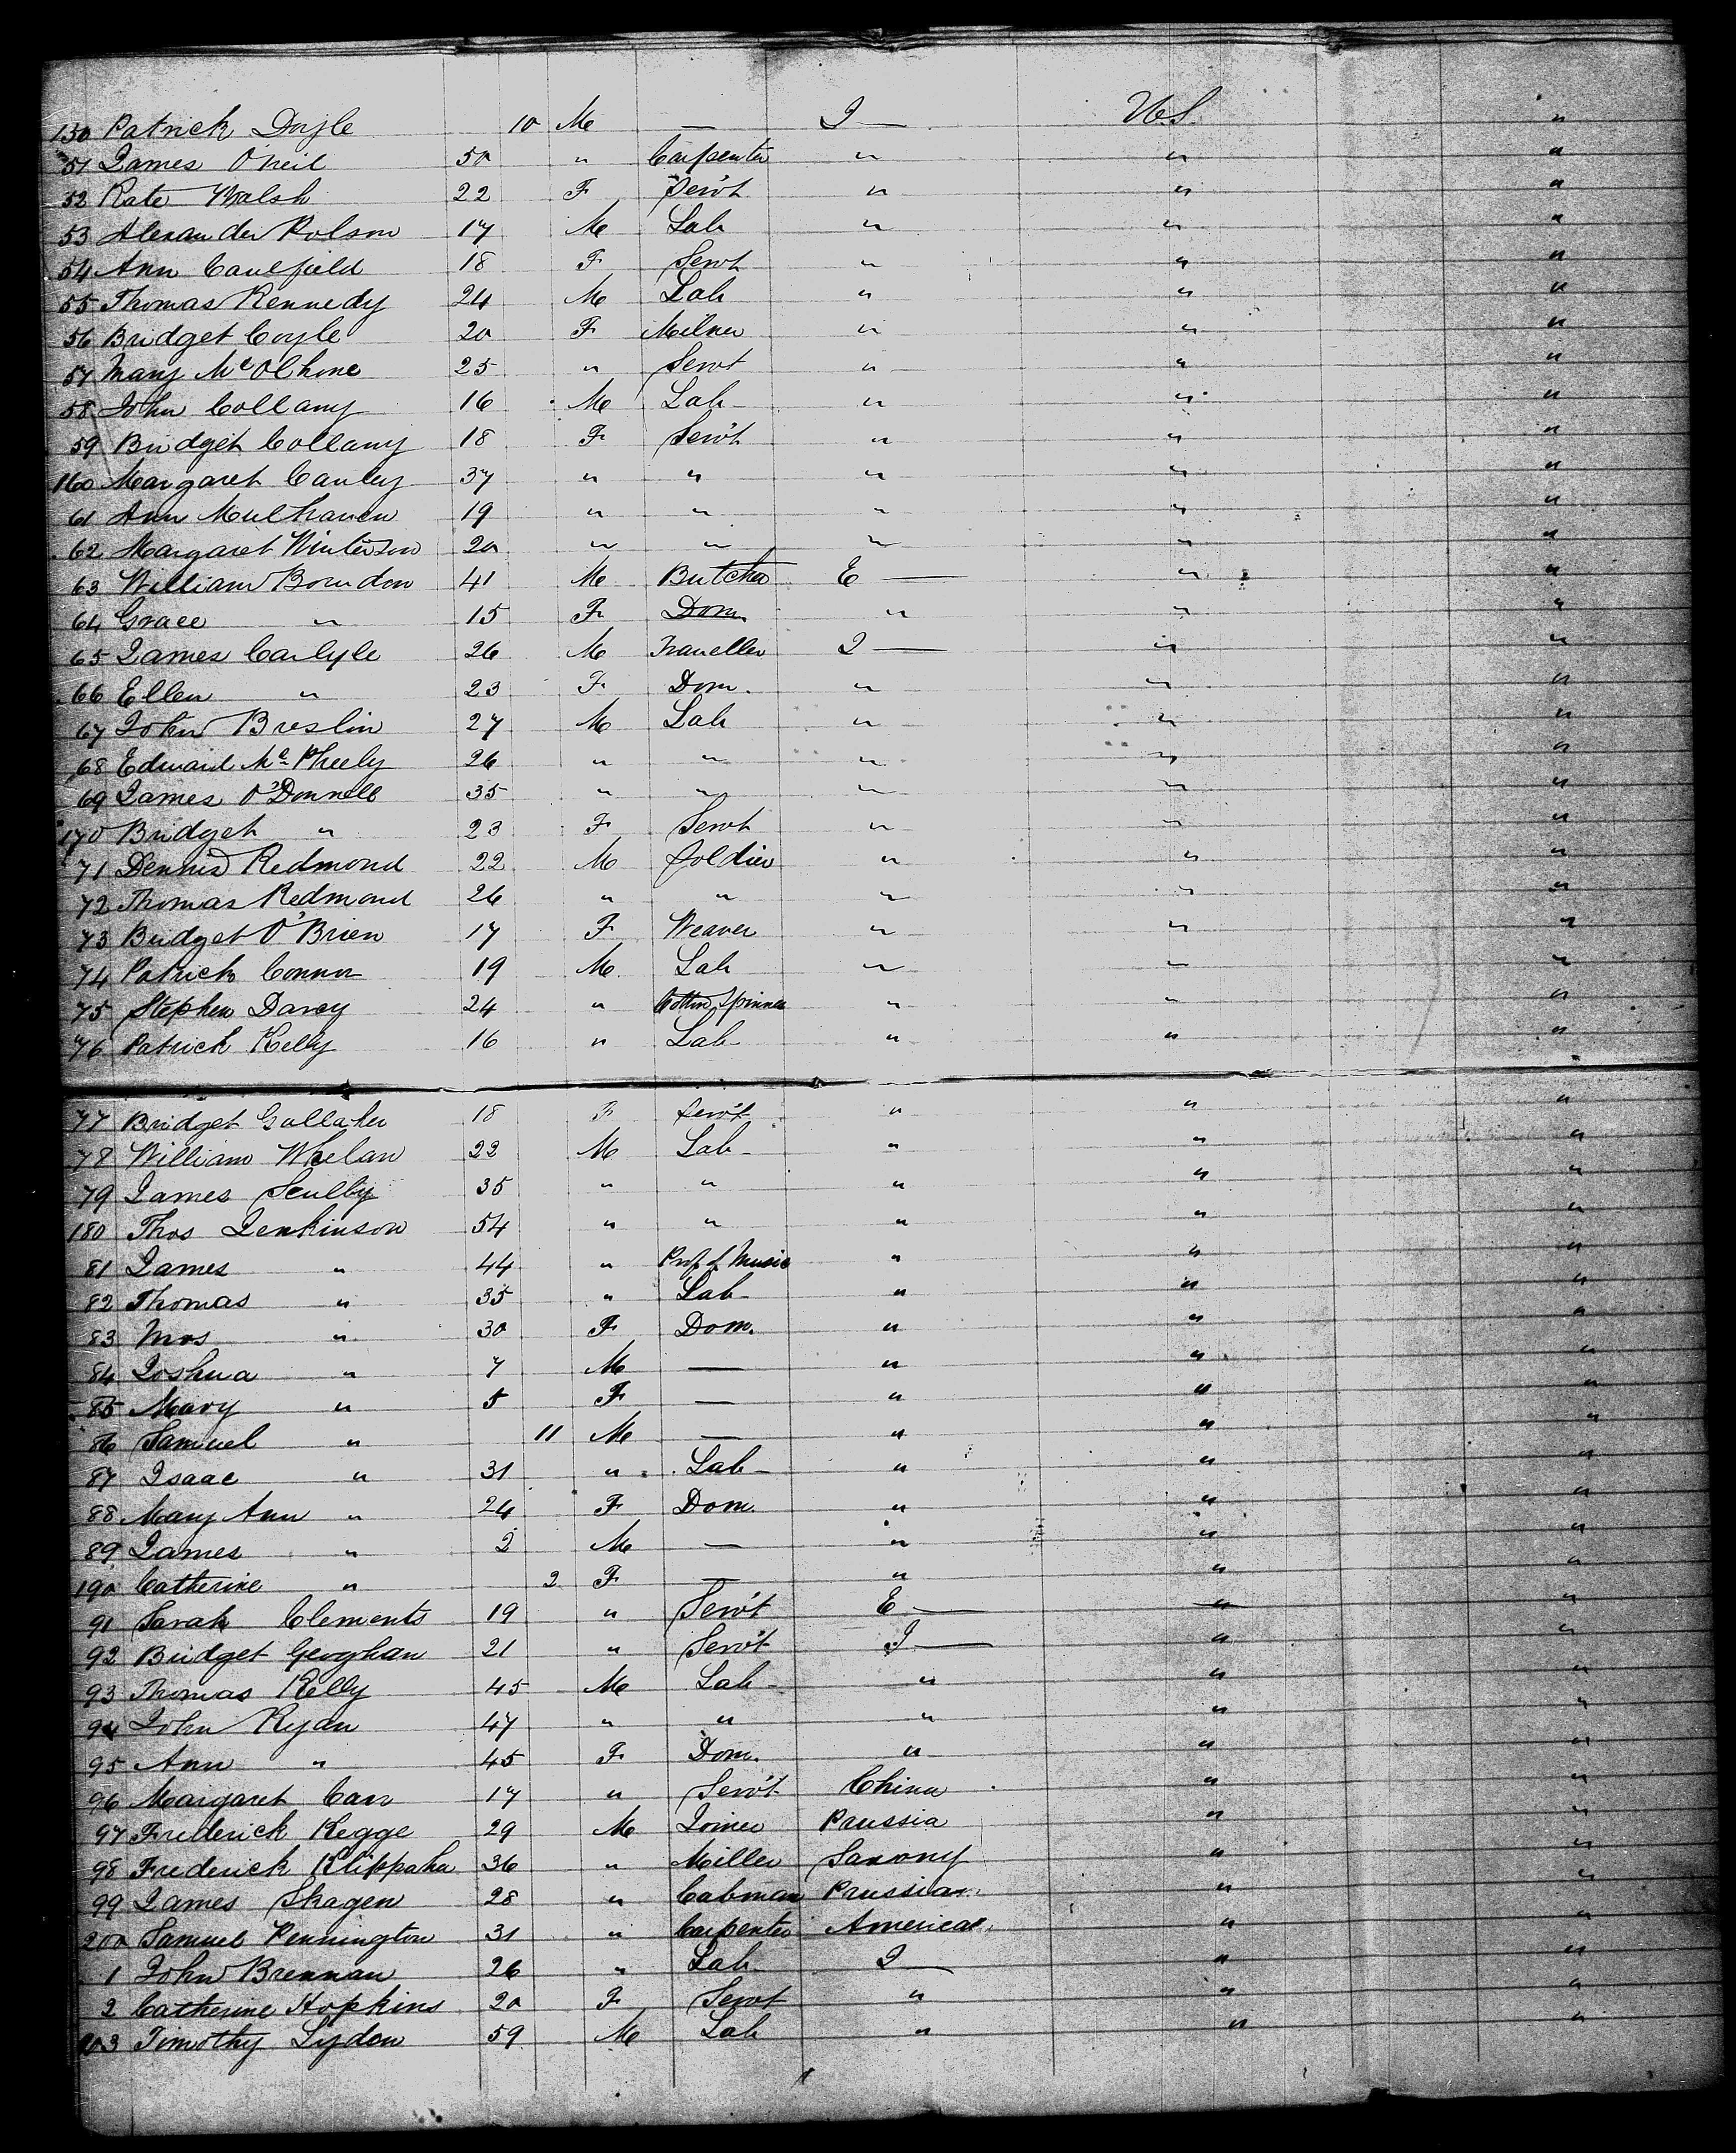 150 Patrick Doyle 10 M — I — U.S. "
51 James O'Neil 50 " Carpenter " " "
52 Kate Walsh 22 F Serv't " " "
53 Alexander Polson 17 M Lab " " "
54 Ann Caulfield 18 F Servt " " "
55 Thomas Kennedy 24 M Lab " " "
56 Bridget Coyle 20 F Milner " " "
57 Mary 25 " Servt " " "
58 John Collany 16 M Lab " " "
59 Bridget Collany 18 F Serv't " " "
160 Margaret Cauley 37 " " " " "
61 Ann Mulhaven 19 " " " " "
62 Margaret Winterson 20 " " " " "
63 William Bowdon 41 M Butcher E — " "
64 Grace " 15 F Dom. " " "
65 James Carlyle 26 M Traveller I — " "
66 Ellen " 23 F Dom. " " "
67 John Breslin 27 M Lab " " "
68 Edward Mc Pheely 26 " " " " "
69 James O'Donnell 35 " " " " "
170 Bridget " 23 F Servt " " "
71 Dennis Redmond 22 M Soldier " " "
72 Thomas Redmond 26 " " " " "
73 Bridget O'Brien 17 F Weaver " " "
74 Patrick Connor 19 M Lab " " "
75 Stephen Darcy 24 " Cotton Spinner " " "
76 Patrick Kelly 16 " Lab " " "
77 Bridget Gallaher 18 F Serv't " " "
78 William Whelan 22 M Lab " " "
79 James Scully 35 " " " " "
180 Thos Jenkinson 54 " " " " "
81 James " 44 " Prof of Music " " "
82 Thomas " 35 " Lab " " "
83 Mrs " 30 F Dom. " " "
84 Joshua " 7 M — " " "
85 Mary " 5 F — " " "
86 Samuel " 11 M — " " "
87 Isaac " 31 " Lab " " "
88 Mary Ann " 24 F Dom. " " "
89 James " 2 M — " " "
190 Catherine " 2 F — " " "
91 Sarah Clements 19 " Serv't E — " "
92 Bridget Geoghan 21 " Serv't I — " "
93 Thomas Kelly 45 M Lab " " "
94 John Ryan 47 " " " " "
95 Ann " 45 F Dom. " " "
96 Margaret Carr 17 " Serv't China " "
97 Frederick Kegge 29 M Joiner Prussia " "
98 Frederick Klippaha 36 " Miller Saxony " "
99 James Skagen 28 " Cabman Prussia " "
200 Samuel Pennington 31 " Carpenter America " "
1 John Brennan 26 " Lab I — " "
2 Catherine Hopkins 20 F Servt " " "
203 Timothy Lydon 59 M Lab " " "